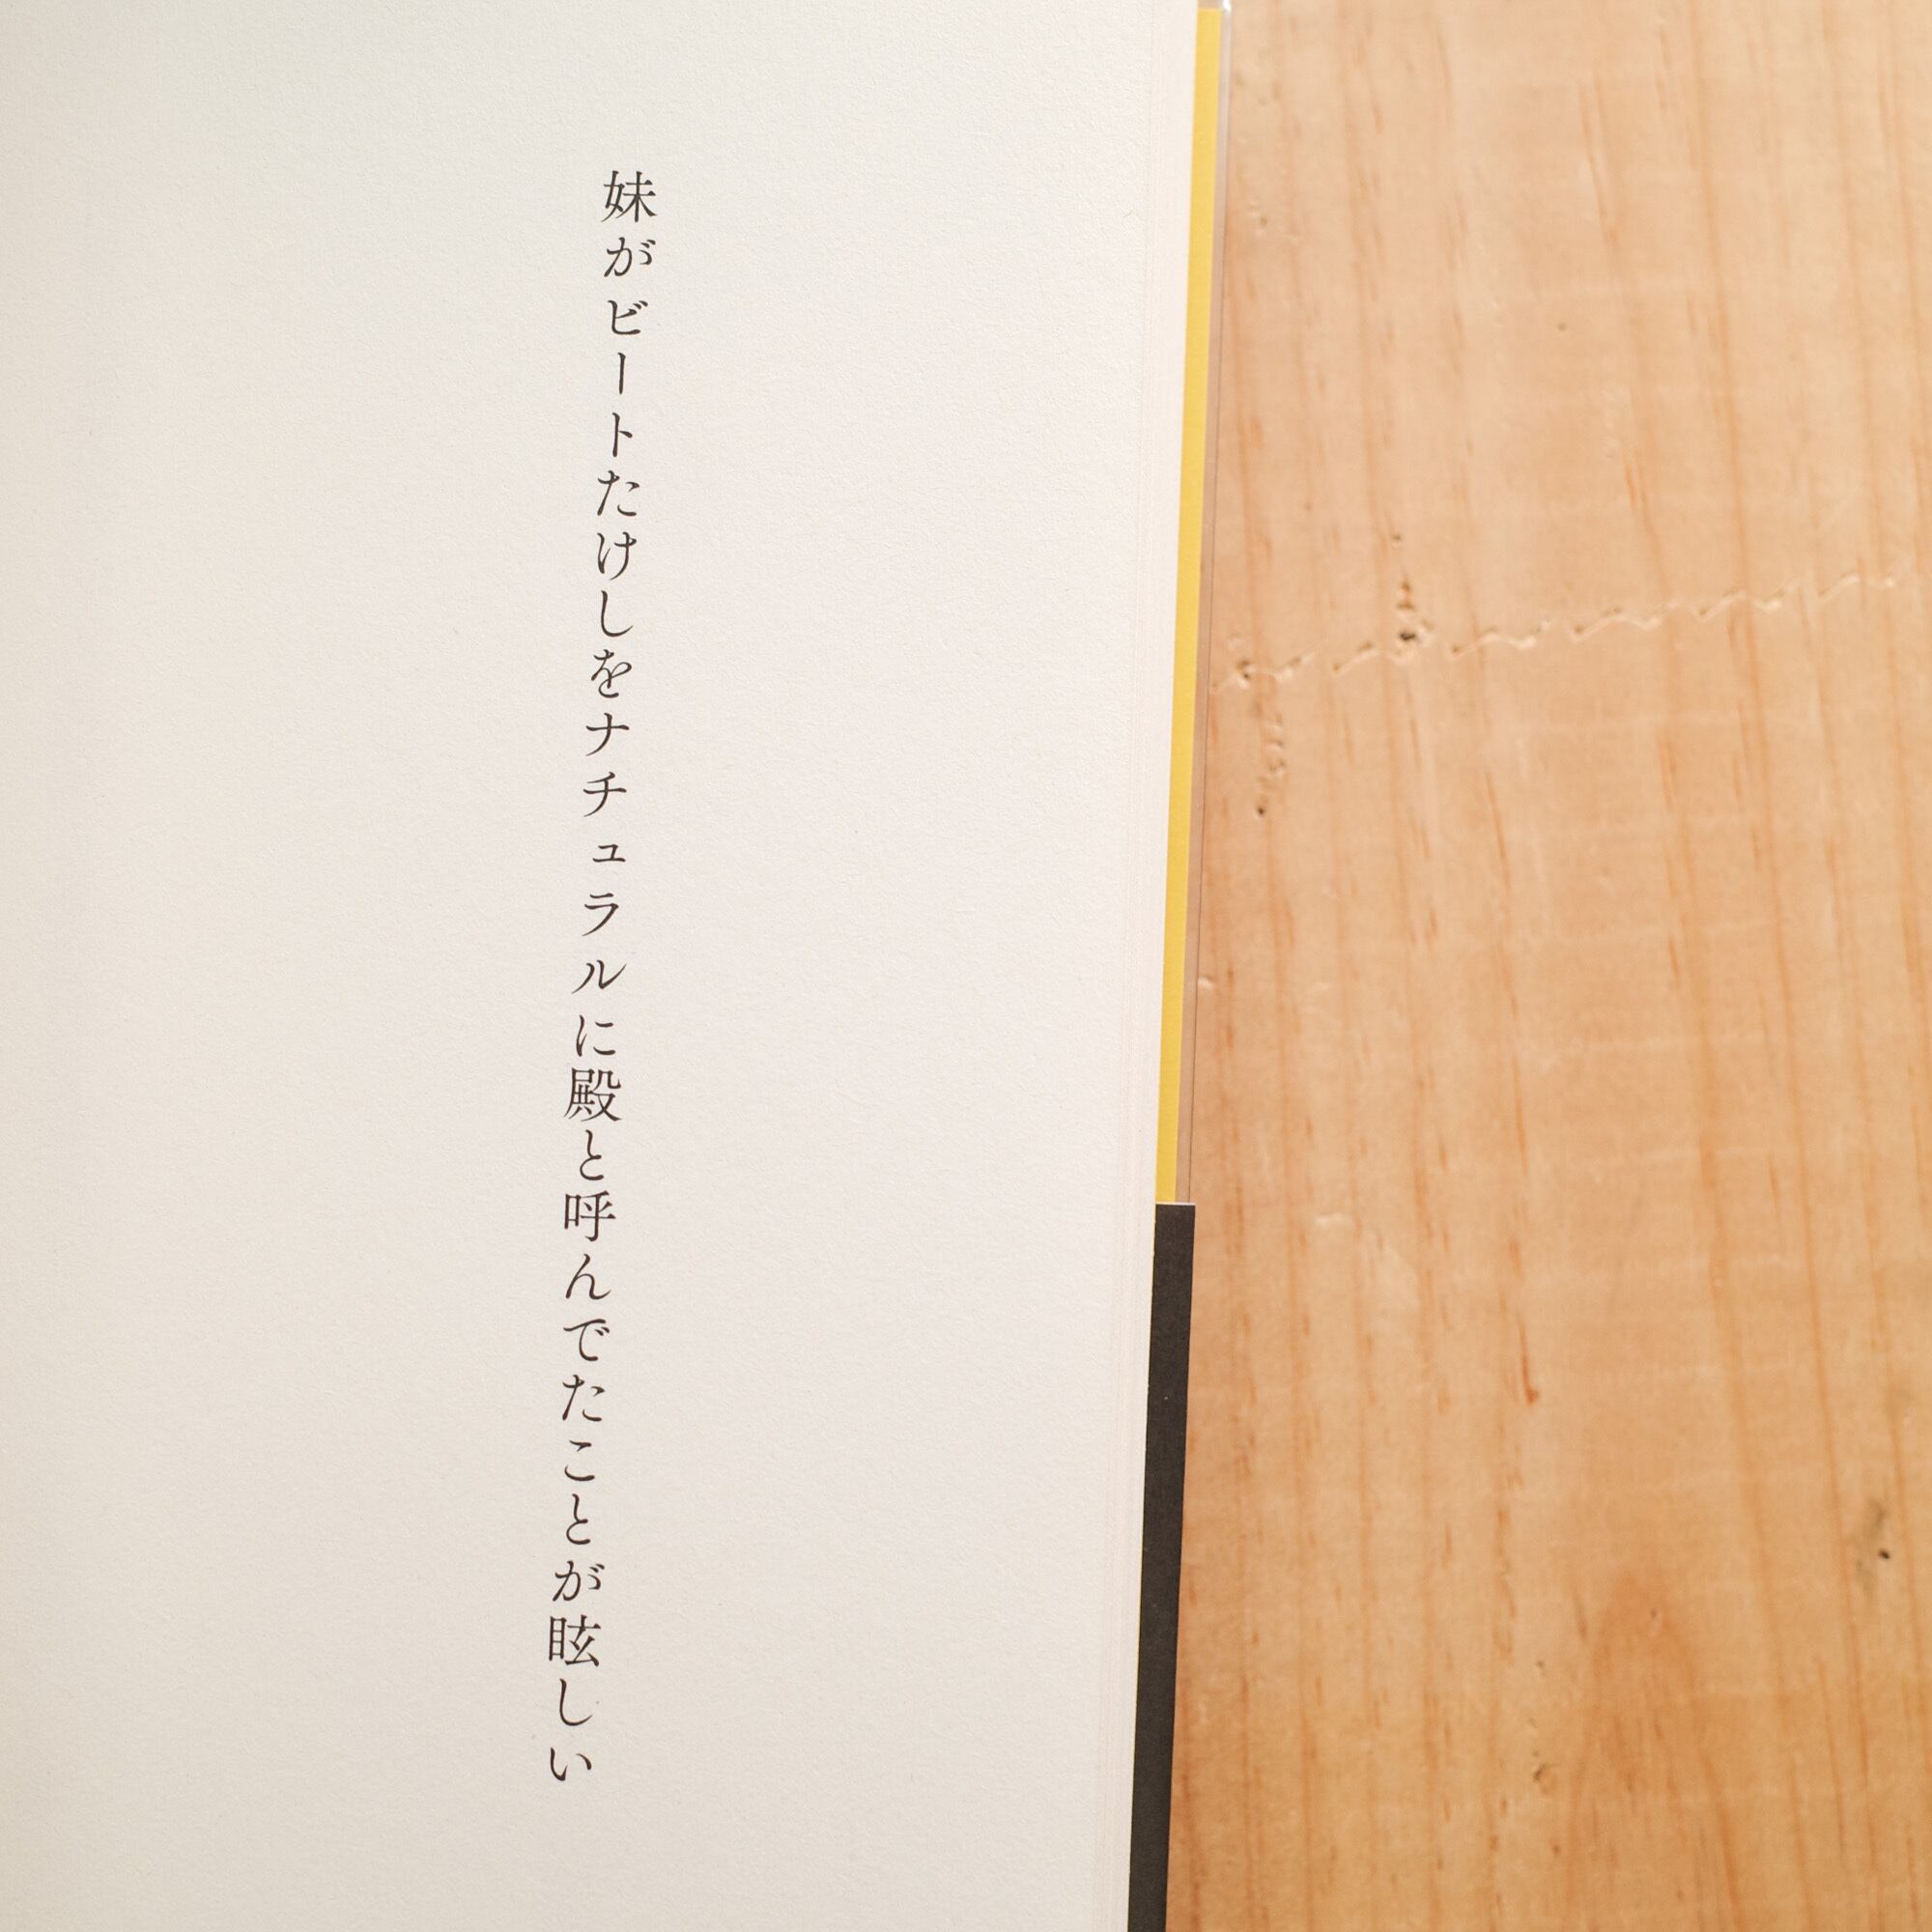 妹がビートたけしをナチュラルに殿と呼んでたことが眩しい